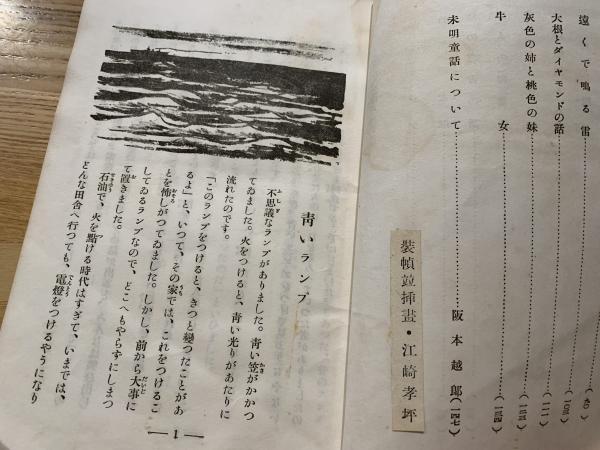 遠くで鳴る雷…………(九〇)
大根とダイヤモンドの話…………(一〇三)
灰色の姉と桃色の妹…………(一一一)
牛女…………(一三四)
未明童話について…………阪本越郎(一四七)
裝幀竝挿畫・江崎孝坪
靑いランプ
不思議なランプがありました。靑い笠がかかつ
てゐました。火をつけると、靑い光りがあたりに
流れたのです。
「このランプをつけると、きつと變つたことがあ
るよ」と、いつて、その家では、これをつけるこ
とを怖しがつてゐました。しかし、前から大事に
してゐるランプなので、どこへもやらずにしまつ
て置きました。
石油で、火を點ける時代はすぎて、いまでは、
どんな田舍へ行つても、電燈をつけるやうになり
— 1 —